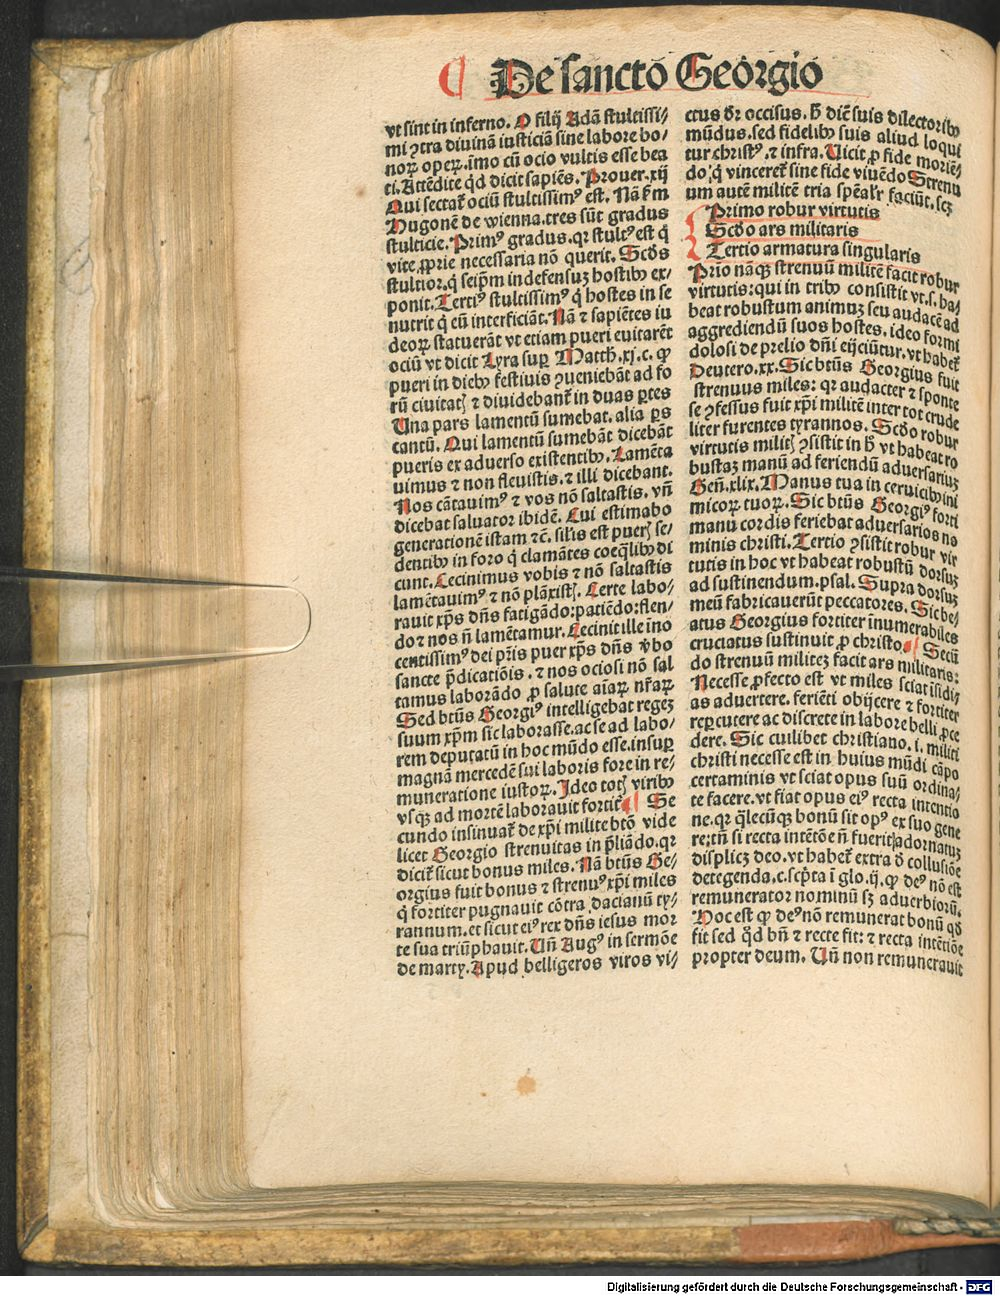 De sancto Georgio
vt sint in inferno. O filij Adā stultissi/
mi ꝯtra diuinā iusticiā sine labore bo/
noꝝ opeꝝ. imo cū ocio vultis esse bea
ti. Attēdite qd̄ dicit sapiēs. Prouer. xij
Qui sectat̄ ociū stultissimꝰ est. Nā f̄m
Hugonē de wienna. tres sūt gradus
stulticie. Primꝰ gradus. qꝛ stultꝰ est q̄
vite ꝓprie necessaria nō querit. Scd̄s
stultior. q̄ seip̄m indefensuꝫ hostibꝰ ex/
ponit. Tertiꝰ stultissimꝰ q̄ hostes in se
nutrit q̄ eū interficiāt. Nā ⁊ sapiētes iu
deoꝝ statuerāt vt etiam pueri euitarēt
ociū vt dicit Lyra suꝑ Matth. xj. c. ꝙ
pueri in diebꝰ festiuis ꝯueniebāt ad fo
rū ciuitatꝭ ⁊ diuidebant̄ in duas ꝑtes
Una pars lamentū sumebat. alia ꝑs
cantū. Qui lamentū sumebāt dicebāt
pueris ex aduerso existentibꝰ. Lamēta
uimus ⁊ non fleuistis. ⁊ illi dicebant.
Nos cātauimꝰ ⁊ vos nō saltastis. vn̄
dicebat saluator ibidē. Cui estimabo
generationē istam ⁊c̄. sil̄is est puerꝭ se/
dentibꝰ in foro q̄ clamātes coeq̄libꝰ di
cunt. Cecinimus vobis ⁊ nō saltastis
lamētauimꝰ ⁊ nō plāxistꝭ. Certe labo/
rauit xp̄s dn̄s fatigādo: patiēdo: flen/
do ⁊ nos n̄ lamētamur. Cecinit ille īno
centissimꝰ dei pr̄is puer xp̄s dn̄s v̄bo
sancte p̄dicatiōis. ⁊ nos ociosi nō sal
tamus laborādo ꝓ salute aīaꝝ nr̄aꝝ
Sed btūs Georgiꝰ intelligebat regeꝫ
suum xp̄m sic laborasse. ac se ad labo/
rem deputatū in hoc mūdo esse. insuꝑ
magnā mercedē sui laboris fore in re/
muneratione iustoꝝ. Ideo totꝭ viribꝰ
vsqꝫ ad mortē laborauit fortit̄ ¶ Se
cundo insinuat̄ de xp̄i milite btō vide
licet Georgio strenuitas in p̄liādo. qꝛ
dicit̄ sicut bonus miles. Nā btūs Ge/
orgius fuit bonus ⁊ strenuꝰ xp̄i miles
q̄ fortiter pugnauit cōtra dacianū ty/
rannum. et sicut eiꝰ rex dn̄s iesus mor
te sua triūphauit. Un̄ Augꝰ in sermōe
de marty. Apud belligeros viros vi/
ctus dr̄ occisus. h̄ diē suis dilectoribꝰ
mūdus. sed fidelibꝰ suis aliud loqui
tur christꝰ. ⁊ infra. Uicit ꝓ fide moriē/
do: q̄ vinceret̄ sine fide viuēdo Strenu
um autē militē tria sp̄eal̄r faciūt. scꝫ
Primo robur virtutis
Scd̄o ars militaris
Tertio armatura singularis
Prīo nāqꝫ strenuū militē facit robur
virtutis: qui in tribꝰ consistit vt. s. ha/
beat robustum animuꝫ seu audacē ad
aggrediendū suos hostes. ideo formi
dolosi de prelio dn̄i eijciūtur. vt habet̄
Deutero. xx. Sic btūs Georgius fuit
strenuus miles: qꝛ audacter ⁊ sponte
se ꝯfessus fuit xp̄i militē inter tot crude
liter furentes tyrannos. Scd̄o robur
virtutis militꝭ ꝯsistit in h̄ vt habeat ro
bustaꝫ manū ad feriendū aduersariuꝫ
Gen̄. xlix. Manus tua in ceruicibꝰ ini
micoꝝ tuoꝝ. Sic btūs Georgiꝰ forti
manu cordis feriebat aduersarios no
minis christi. Tertio ꝯsistit robur vir
tutis in hoc vt habeat robustū dorsuꝫ
ad sustinendum. psal. Supra dorsuꝫ
meū fabricauerūt peccatores. Sic be/
atus Georgius fortiter īnumerabiles
cruciatus sustinuit ꝓ christo. ¶ Secū
do strenuū militeꝫ facit ars militaris:
Necesse ꝓfecto est vt miles sciat īsidi/
as aduertere. feriēti obijcere ⁊ fortiter
reꝑcutere ac discrete in labore belli ꝓce
dere. Sic cuilibet christiano. i. militi
christi necesse est in huius mūdi cāpo
certaminis vt sciat opus suū ordina/
te facere. vt fiat opus eiꝰ recta intentio
ne. qꝛ q̄lecūqꝫ bonū sit opꝰ ex suo gene
re: tn̄ si recta intētōe n̄ fuerit adornatuꝫ
displicꝫ deo. vt habet̄ extra d̄ collusiōe
detegenda. c. scp̄ta ī glo. ij. ꝙ deꝰ nō est
remunerator nominū sꝫ aduerbiorū.
Hoc est ꝙ deꝰ nō remunerat bonū qd̄
fit sed qd̄ bn̄ ⁊ recte fit: ⁊ recta intētiōe
propter deum. Un̄ non remunerauit
Digitalisierung gefördert durch die Deutsche Forschungsgemeinschaft - DFG